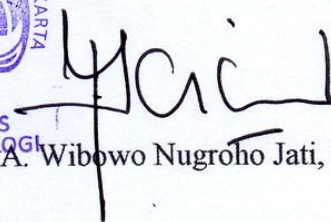 KARTA
S
OGI
A. Wibowo Nugroho Jati,